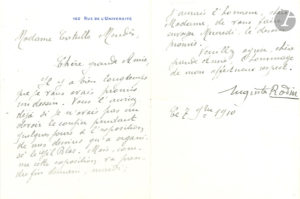 182 RUE DE L'UNIVERSITÉ
Madame Catulle Mendès
Chère grande Amie,
Il y a bien longtemps
que je vous avais promis
un dessin. Vous l'auriez
déjà si je n'avais pas un
devoir le confier pendant
quelques jours à l'exposition
de mes dessins qu'a organi-
sé le Gil Blas. Mais, com-
me cette exposition va pren-
dre fin demain, mardi,
j'aurai l'honneur, chère
Madame, de vous faire
envoyer Mercredi, le dessin
promis.
Veuillez agréer, chère
grande Amie, l'hommage
de mon affectueux respect.
Auguste Rodin
Le 7 1910
ADER